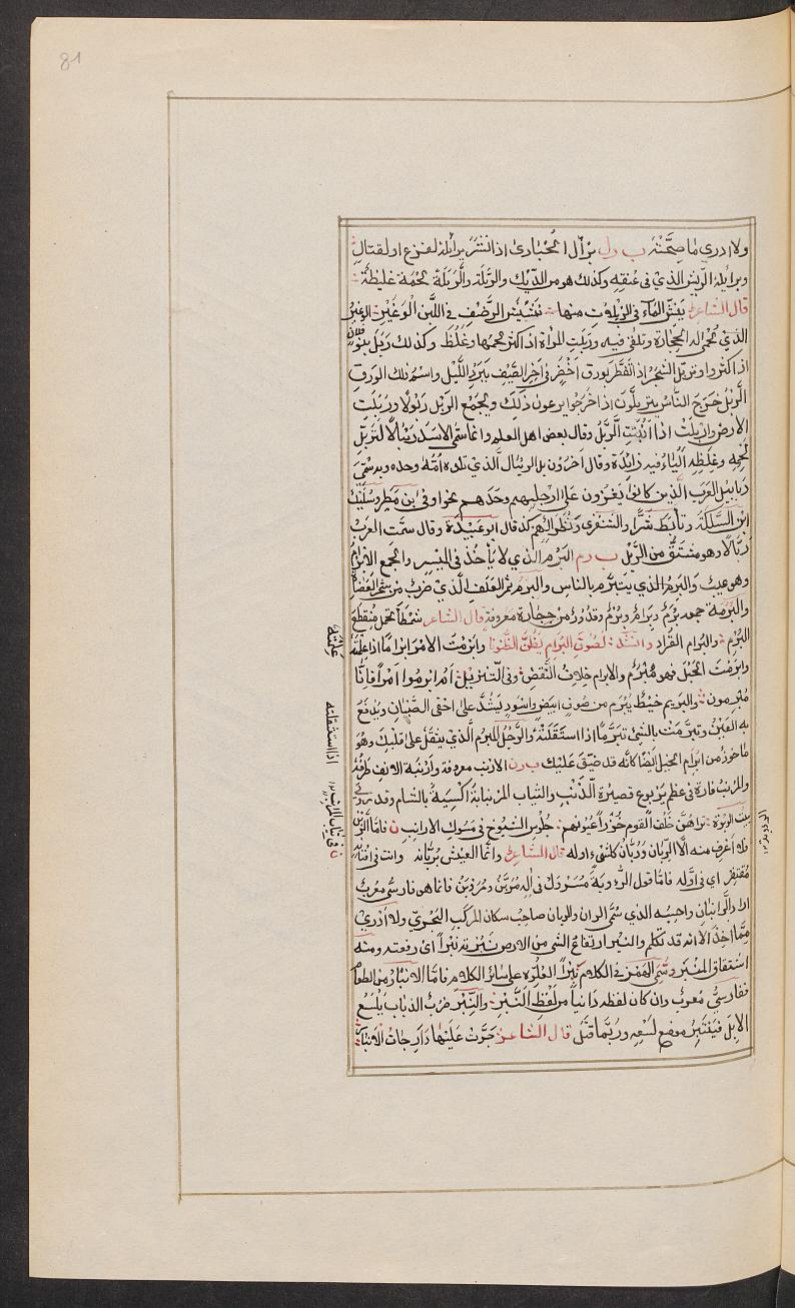 81
ولا ادري ما صحَّته ب ر ل برأل الحُبارى اذا نشر برائله لفزع او لقتال
وبرائله الريش الذي في عنقه وكذلك هو من الديك والرَّبَلة والرَّبْلة لحمة غليظة
قال الشاعر ينشّ الماء في الربلات منها نشيش الرضف في اللبن الوغير الوغير
الذي تحمى له الحجارة وتلقى فيه وربلت المرأة اذا كثر لحمها وغلظ وكذلك ربل بنو فلان
اذا كثروا وتربّل الشجر اذا تفطّر بورق اخضر في آخر الصيف ببرد الليل واسم ذلك الورق
الرَّبْل خرج الناس يتربّلون اذا خرجوا يرعون ذلك ويجمع الربل ربولا وربلت
الارض واربلت اذا انبتت الربل وقال بعض اهل العلم وانما سمّى الاسد ريبالا لتربّل
لحمه وغلظه الياء فيه زائدة وقال آخرون بل الريبال الذي تلده امّه وحده وبه سمّى
ريابيل العرب الذين كانوا يغزون على ارجلهم وحدهم نحو اوفى بن مطر وسليك
ابن السلكة وتأبّط شرّا والشنفرى ونظرائهم كذا قال ابو عبيدة وقال سمّت العرب
ربّالا وهو مشتق من الربل ب ر م البَرَم الذي لا يأخذ في الميسر والجمع الابرام
وهو عيب والبرم الذي يتبرّم بالناس والبرم ثمر العلف الذي ضرب من شجر العضاه
والبرمة جمعه بُرَم وبرام وبرم وقدور من حجارة معروفة قال الشاعر شمطاء تحمل منقطع
البرم والبرام القراد وانشد لصوت البرام يظن الظنونا وابرمت الامر ابراما اذا علّته
وابرمت الحبل فهو مبرم والابرام خلاف النقض وفي التنزيل ام ابرموا امرا فانا
مبرمون والبريم خيط يبرم من صوف ابيض واسود يشدّ على احقى الصبيان ويدفع
به العين وتبرّمت بالشيء تبرّما اذا استثقلته والرجل المبرم الذي يثقل على قلبك وهو
ماخوذ من ابرام الحبل ايضا كأنه قد ضيّق عليك ب ر ن الارنب معروفة وارنبة الانف طرفه
والمرنب فارة في عظم يربوع قصيرة الذنب والثياب المرنبانية اكسية بالشام وقد روى
بيت تراهنّ خلف القوم خزرا عيونهم جلوس الشيوخ في مسوك الارانب فاما الربن
فلا اعرف منه الا الربّان وربّان كل شيء اوله قال الشاعر وانما العيش بربّانه وانت في افنانه
مقتفر اي في اوّله فاما قول الرؤبة مسرول في آله مربّن ومروبن فانما هو فارسي معرب
اراد الرانبان واحسبه الذي سمّى الران والربان صاحب سكان المركب البحري ولا ادري
ممّا اخذ الا انه قد تكلّم والنبر ارتفاع الشيء من الارض نبرته نبرا اي رفعته ومنه
اشتقاق المنبر وسمى الهمز في الكلام نبرا لعلوّه على سائر الكلام فاما الانبار من الطعام
ففارسي معرب وان كان لفظه دانيا من لفظ النبر والنبر ضرب الذباب يلسع
الابل فينتبر موضع لسعه وربّما قتل قال الشاعر جرت عليها دارجات الانبار
علّته
اذا استثقلته